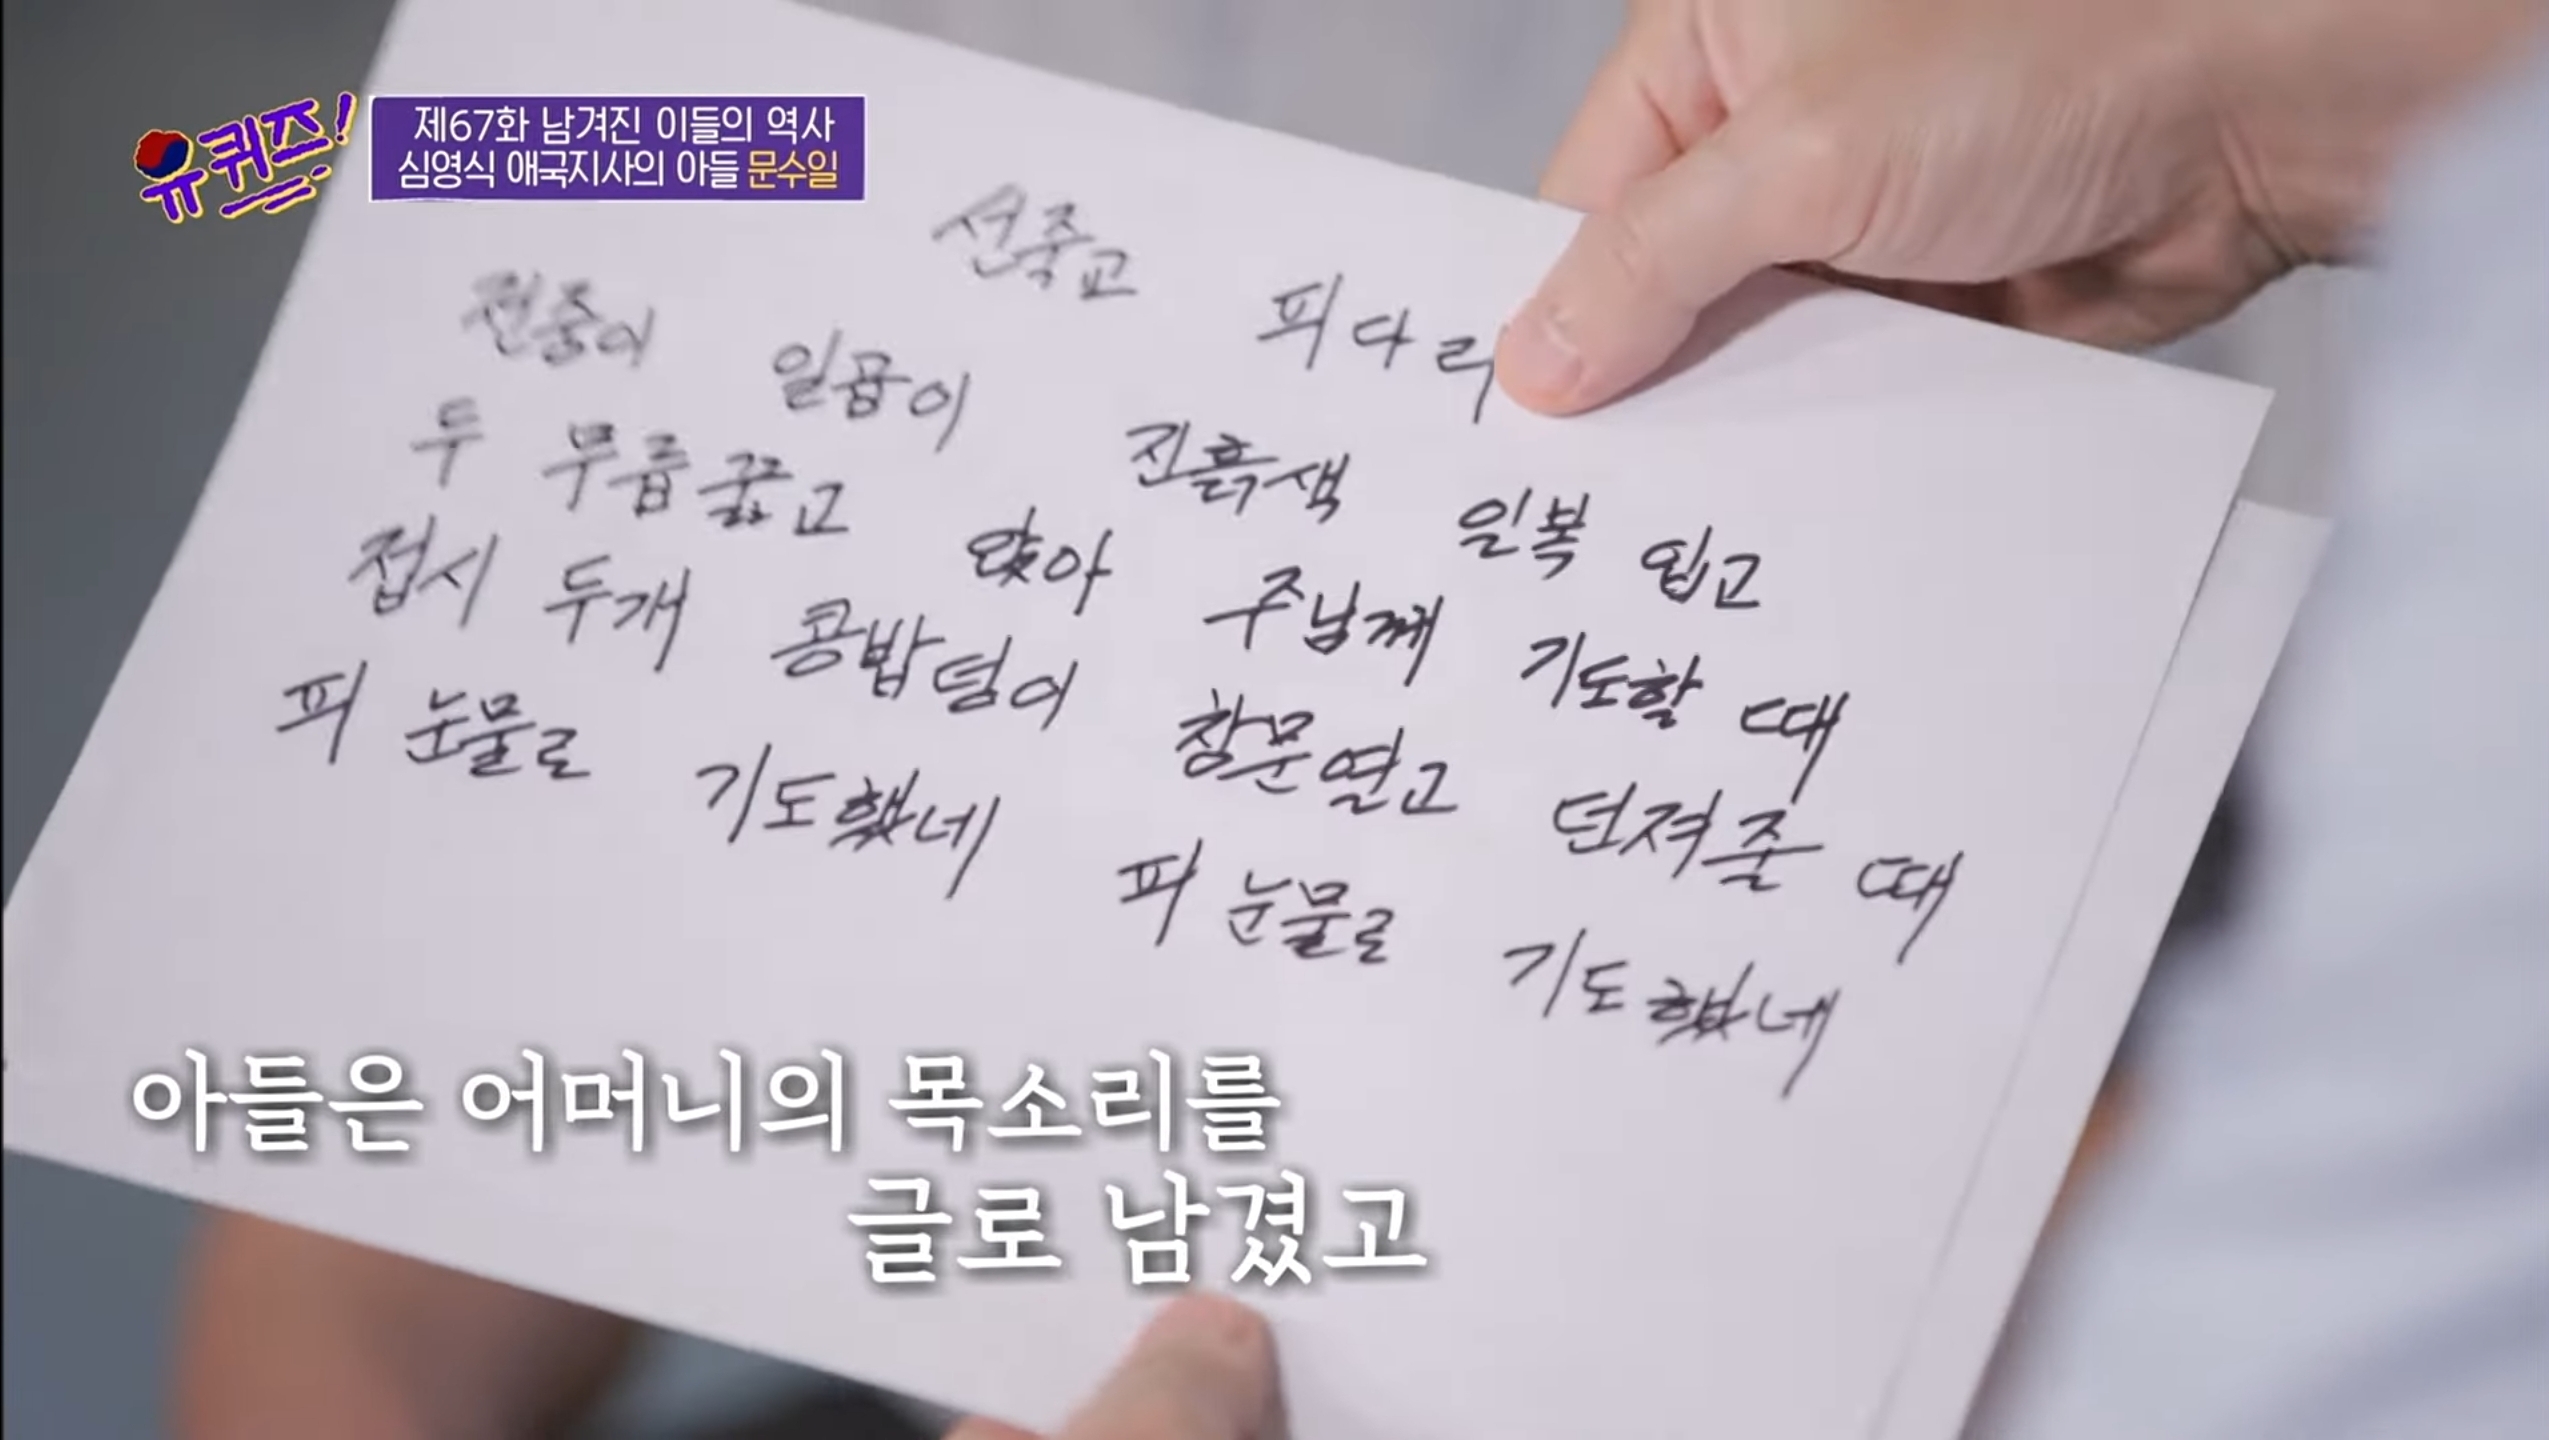 유퀴즈!
제67화 남겨진 이들의 역사
심영식 애국지사의 아들 문수일
선죽교 피다리
전중이 일곱이 진흙색 일복 입고
두 무릅꿇고 앉아 주님께 기도할 때
접시 두개 콩밥덩이 창문열고 던져줄 때
피 눈물로 기도했네 피 눈물로 기도했네
아들은 어머니의 목소리를
글로 남겼고